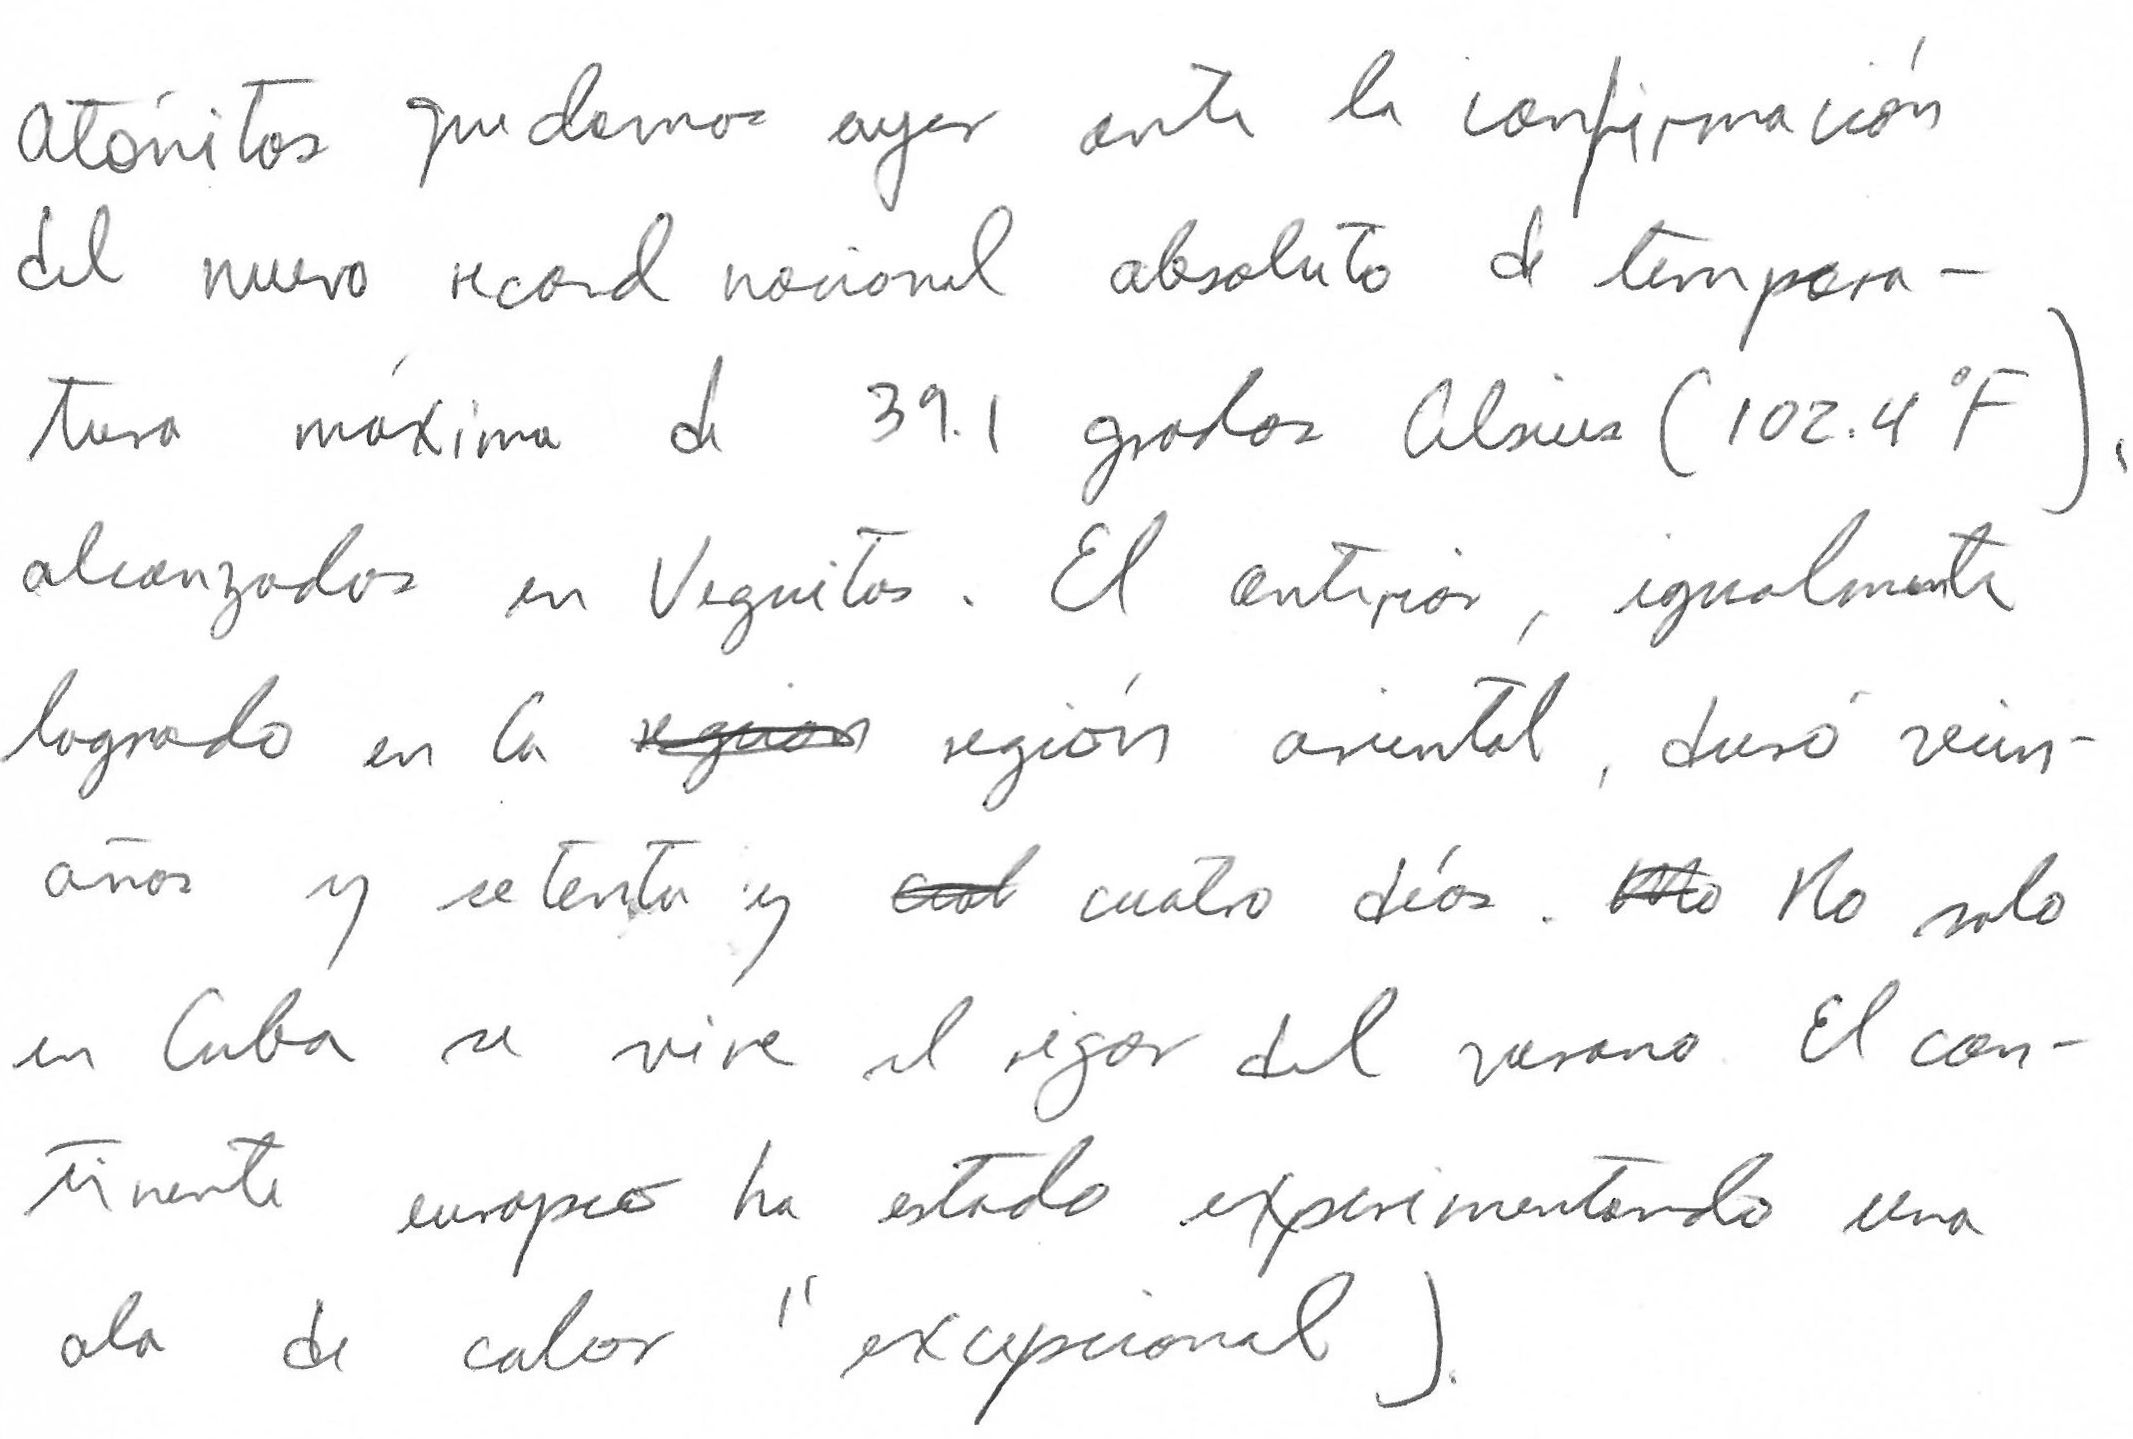 Atónitos quedamos ayer ante la confirmación
del nuevo record nacional absoluto de tempera-
tura máxima de 39.1 grados Celsius (102.4°F),
alcanzados en Veguitas. El anterior, igualmente
logrado en la región oriental, duró vein-
años y setenta y cuatro días. No solo
en Cuba se vive el rigor del verano. El con-
tinente europeo ha estado experimentando una
ola de calor "excepcional).